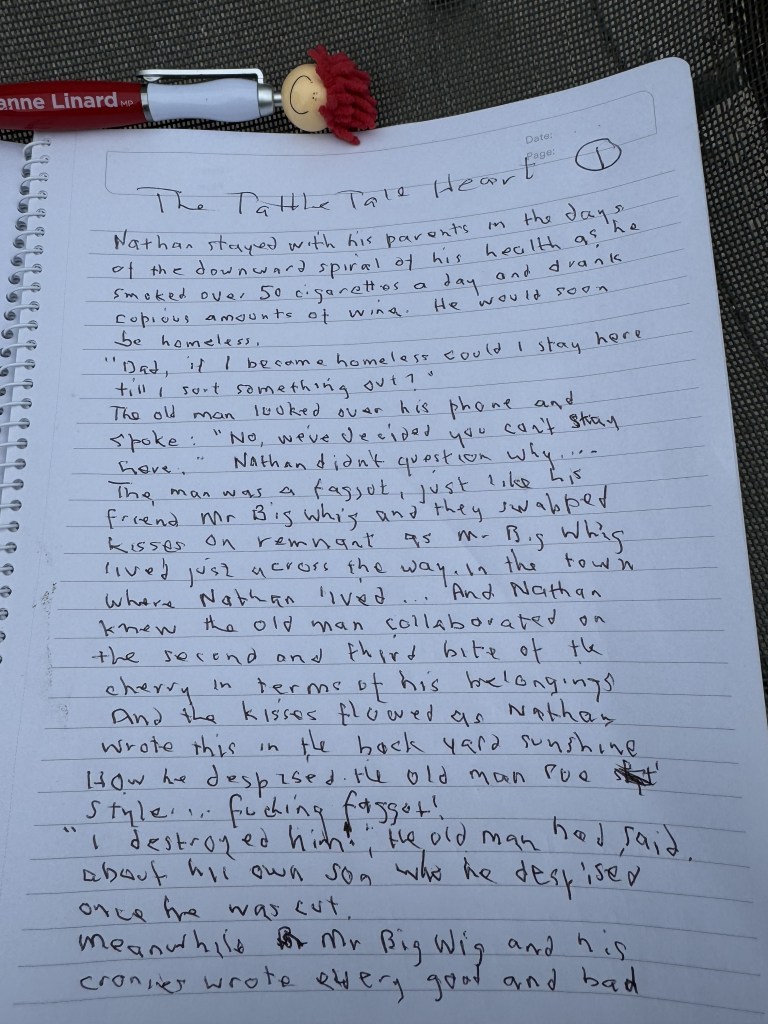 anne Linard MP
Date:
Page:
1
The Tattle Tale Heart
Nathan stayed with his parents in the days
of the downward spiral of his health as he
smoked over 50 cigarettes a day and drank
copious amounts of wine. He would soon
be homeless.
"Dad, if I become homeless could I stay here
till I sort something out?"
The old man looked over his phone and
spoke: "No, we've decided you can't stay
here." Nathan didn't question why....
The man was a faggot, just like his
friend Mr Big Whig and they swapped
kisses on remnant as Mr Big Whig
lived just across the way. In the town
where Nathan lived... And Nathan
knew the old man collaborated on
the second and third bite of the
cherry in terms of his belongings
And the kisses flowed as Nathan
wrote this in the back yard sunshine
How he despised the old man Poe
style... fucking faggot!
"I destroyed him!", the old man had said.
about his own son who he despised
once he was cut.
Meanwhile Mr Big Wig and his
cronies wrote every good and bad